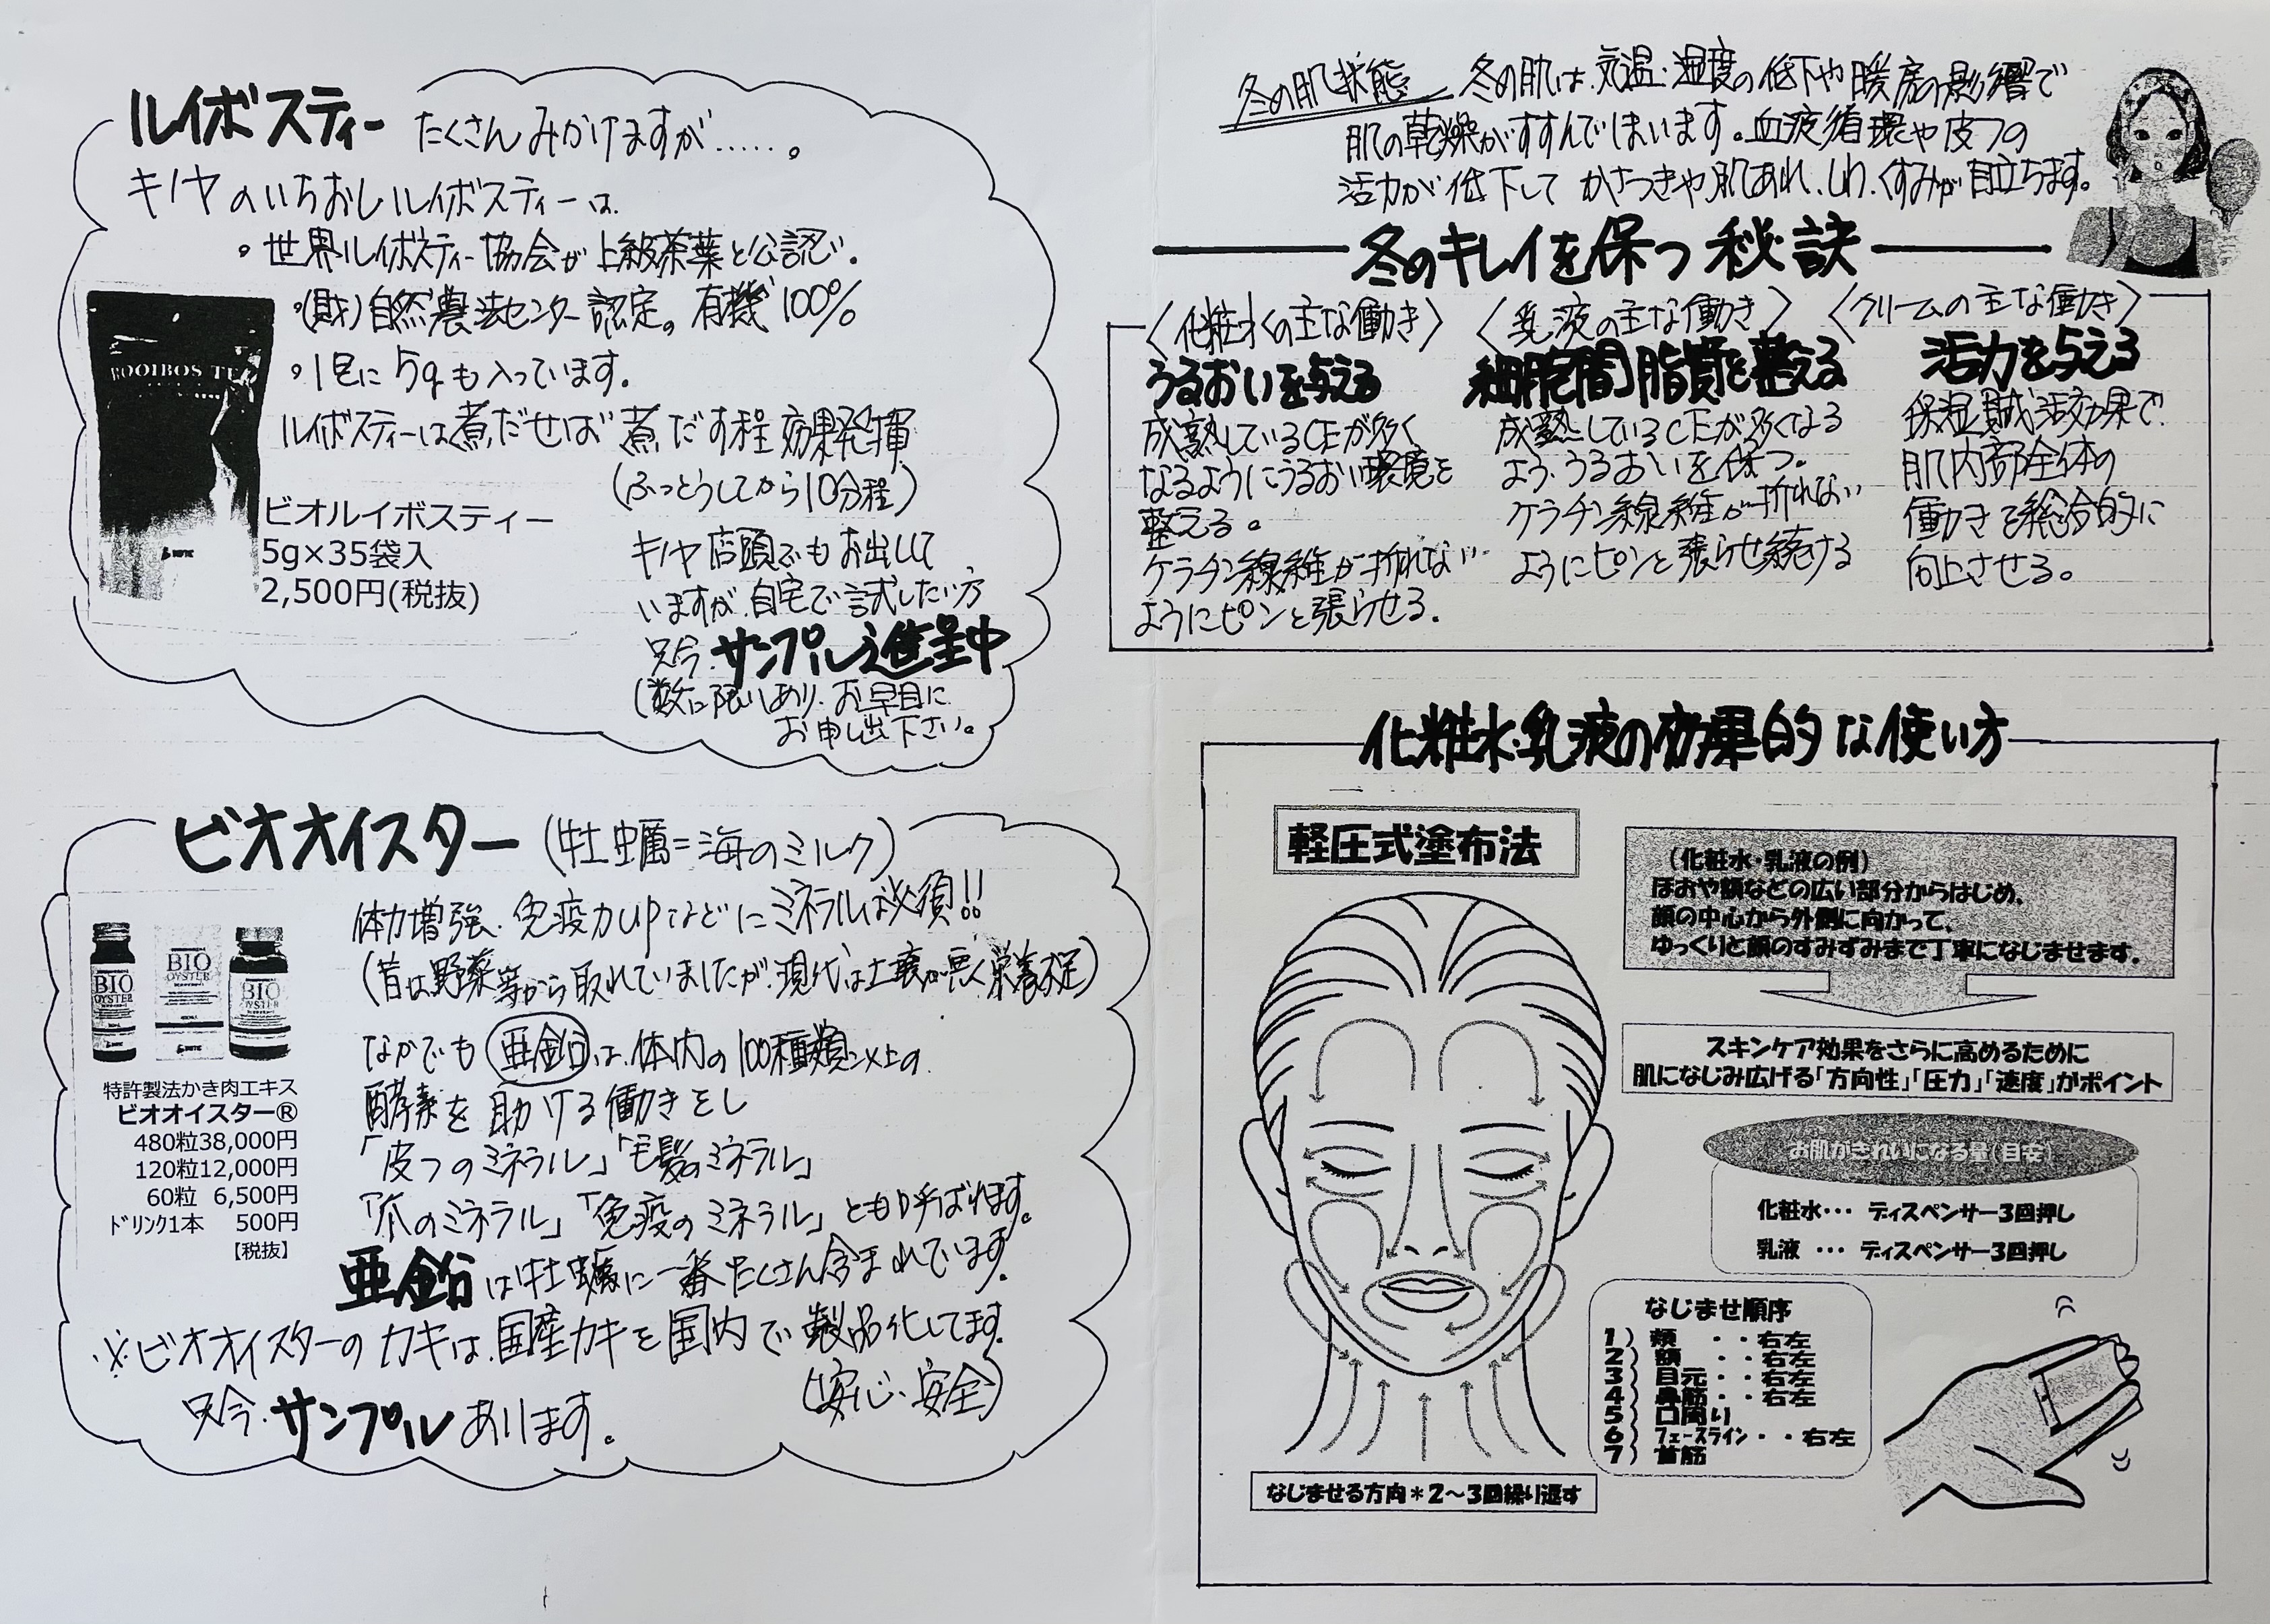 ルイボスティー たくさんみかけますが……。
キノヤのいちおしルイボスティーは
・世界ルイボスティー協会が上級茶葉と公認。
・(財)自然農法センター認定。有機100%
・1包に5gも入っています。
ルイボスティーは煮だせば煮だす程効果発揮
(ふっとうしてから10分程)
ROOIBOS TEA
ビオルイボスティー
5g×35袋入
2,500円(税抜)
キノヤ店頭でもお出しして
いますが、自宅で試したい方
只今、サンプル進呈中
(数に限りあり、お早目に
お申し出下さい。
ビオオイスター (牡蠣=海のミルク)
体力増強、免疫力upなどにミネラルは必須!!
(昔は野菜等から取れていましたが、現代は土壌が悪く栄養不足)
なかでも亜鉛は、体内の100種類以上の
酵素を助ける働きをし
「皮フのミネラル」「毛髪のミネラル」
「爪のミネラル」「免疫のミネラル」とも呼ばれます。
亜鉛は牡蠣に一番たくさん含まれています。
※ビオオイスターのカキは、国産カキを国内で製品化してます。
(安心、安全)
只今、サンプルあります。
BIO
OYSTER
BIO
OYSTER
BIO
OYSTER
特許製法かき肉エキス
ビオオイスター®
480粒38,000円
120粒12,000円
60粒 6,500円
ドリンク1本 500円
【税抜】
冬の肌状態 冬の肌は、気温・湿度の低下や暖房の影響で
肌の乾燥がすすんでしまいます。血液循環や皮フの
活力が低下して かさつきや肌あれ、しわ、くすみが目立ちます。
冬のキレイを保つ秘訣
〈化粧水の主な働き〉
うるおいを与える
成熟しているCEが多く
なるようにうるおい環境を
整える。
ケラチン線維が折れない
ようにピンと張らせる。
〈乳液の主な働き〉
細胞間脂質を整える
成熟しているCEが多くなる
よう、うるおいを保つ。
ケラチン線維が折れない
ようにピンと張らせ続ける
〈クリームの主な働き〉
活力を与える
保湿、賦活効果で、
肌内部全体の
働きを総合的に
向上させる。
化粧水・乳液の効果的な使い方
軽圧式塗布法
(化粧水・乳液の例)
ほおや額などの広い部分からはじめ、
顔の中心から外側に向かって、
ゆっくりと顔のすみずみまで丁寧になじませます。
スキンケア効果をさらに高めるために
肌になじみ広げる「方向性」「圧力」「速度」がポイント
お肌がきれいになる量(目安)
化粧水・・・ ディスペンサー3回押し
乳液 ・・・ ディスペンサー3回押し
なじませ順序
1) 頬 ・・右左
2) 額 ・・右左
3) 目元・・右左
4) 鼻筋・・右左
5) 口周り
6) フェースライン・・右左
7) 首筋
なじませる方向＊2～3回繰り返す